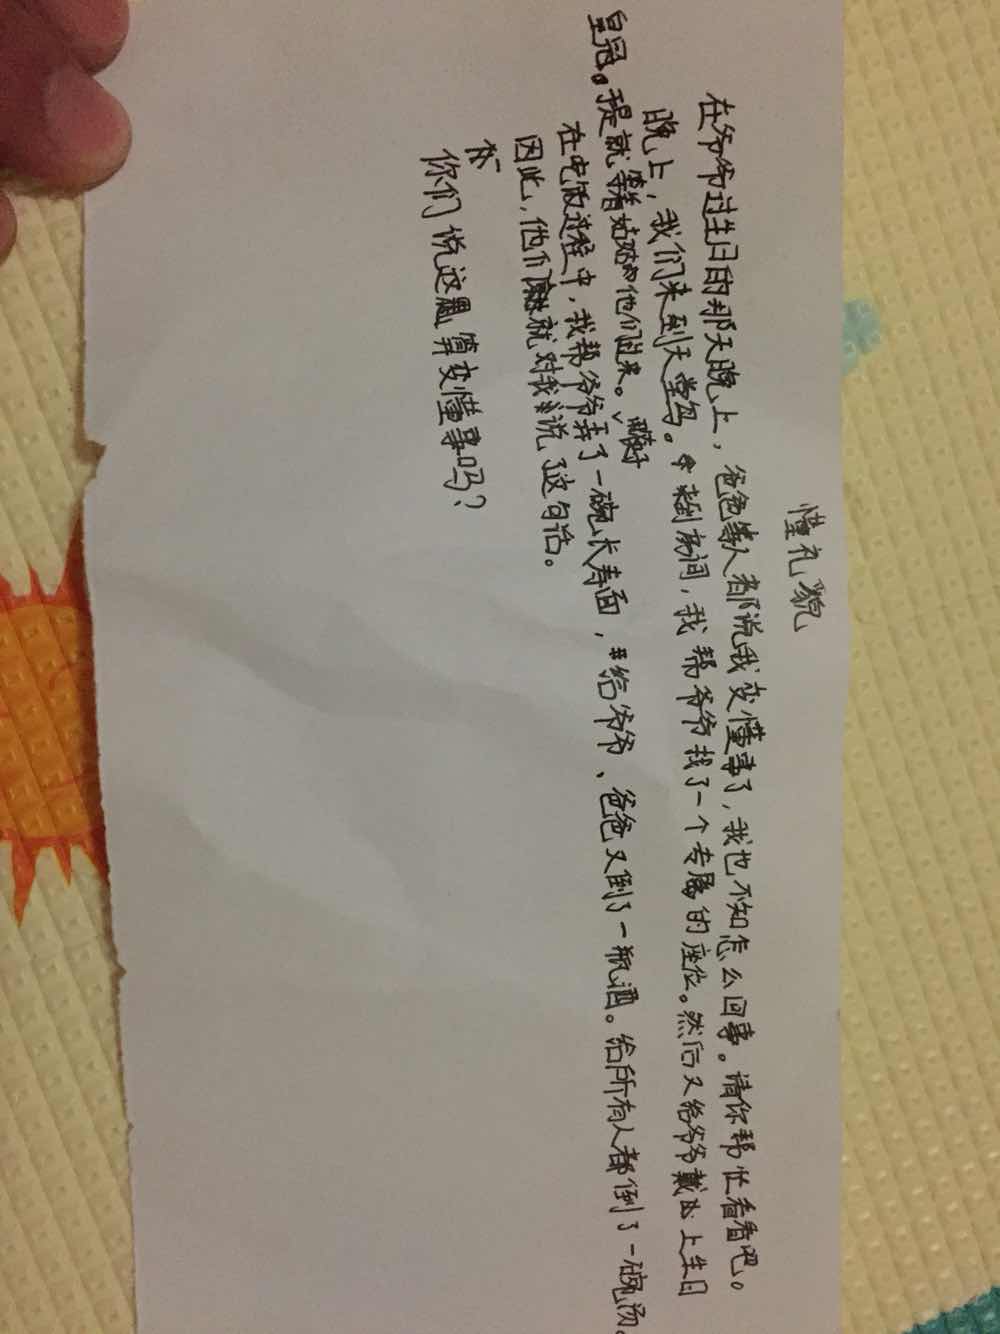 懂礼貌
在爷爷过生日的那天晚上，爸爸等人都说我变懂事了，我也不知怎么回事。请你帮忙看看吧。
晚上，我们来到天堂鸟。来到房间，我帮爷爷找了一个专属的座位。然后又给爷爷戴上生日
皇冠。我就等着姑姑他们过来。
在吃饭过程中，我帮爷爷弄了一碗长寿面，给爷爷、爸爸又倒了一瓶酒。给所有人都倒了一碗汤。
因此，他们就对我说了这句话。
你们说这算变懂事吗？